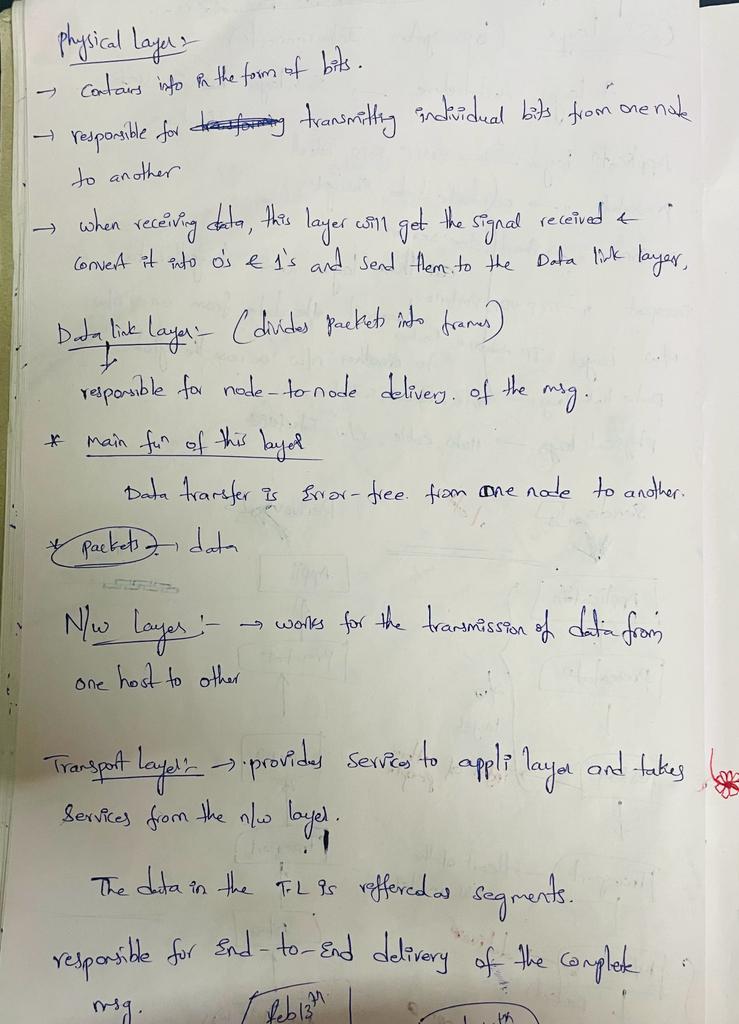 physical Layer :-
→ Contains info in the form of bits.
→ responsible for transmitting individual bits, from one node
to another
→ when receiving data, this layer will get the signal received &
Convert it into 0's & 1's and send them to the Data link layer,
Data link Layer :- (divides packets into frames)
responsible for node-to-node delivery. of the msg.
* Main fun of this layer
Data transfer is Error-free. from one node to another.
* packets → data
N/w Layer :- → works for the transmission of data from
one host to other
Transport Layer :- → provides Services to appli layer and takes
Services from the n/w layer.
The data in the T-L is reffered as segments.
responsible for End-to-End delivery of the complete
msg.
Feb 13th